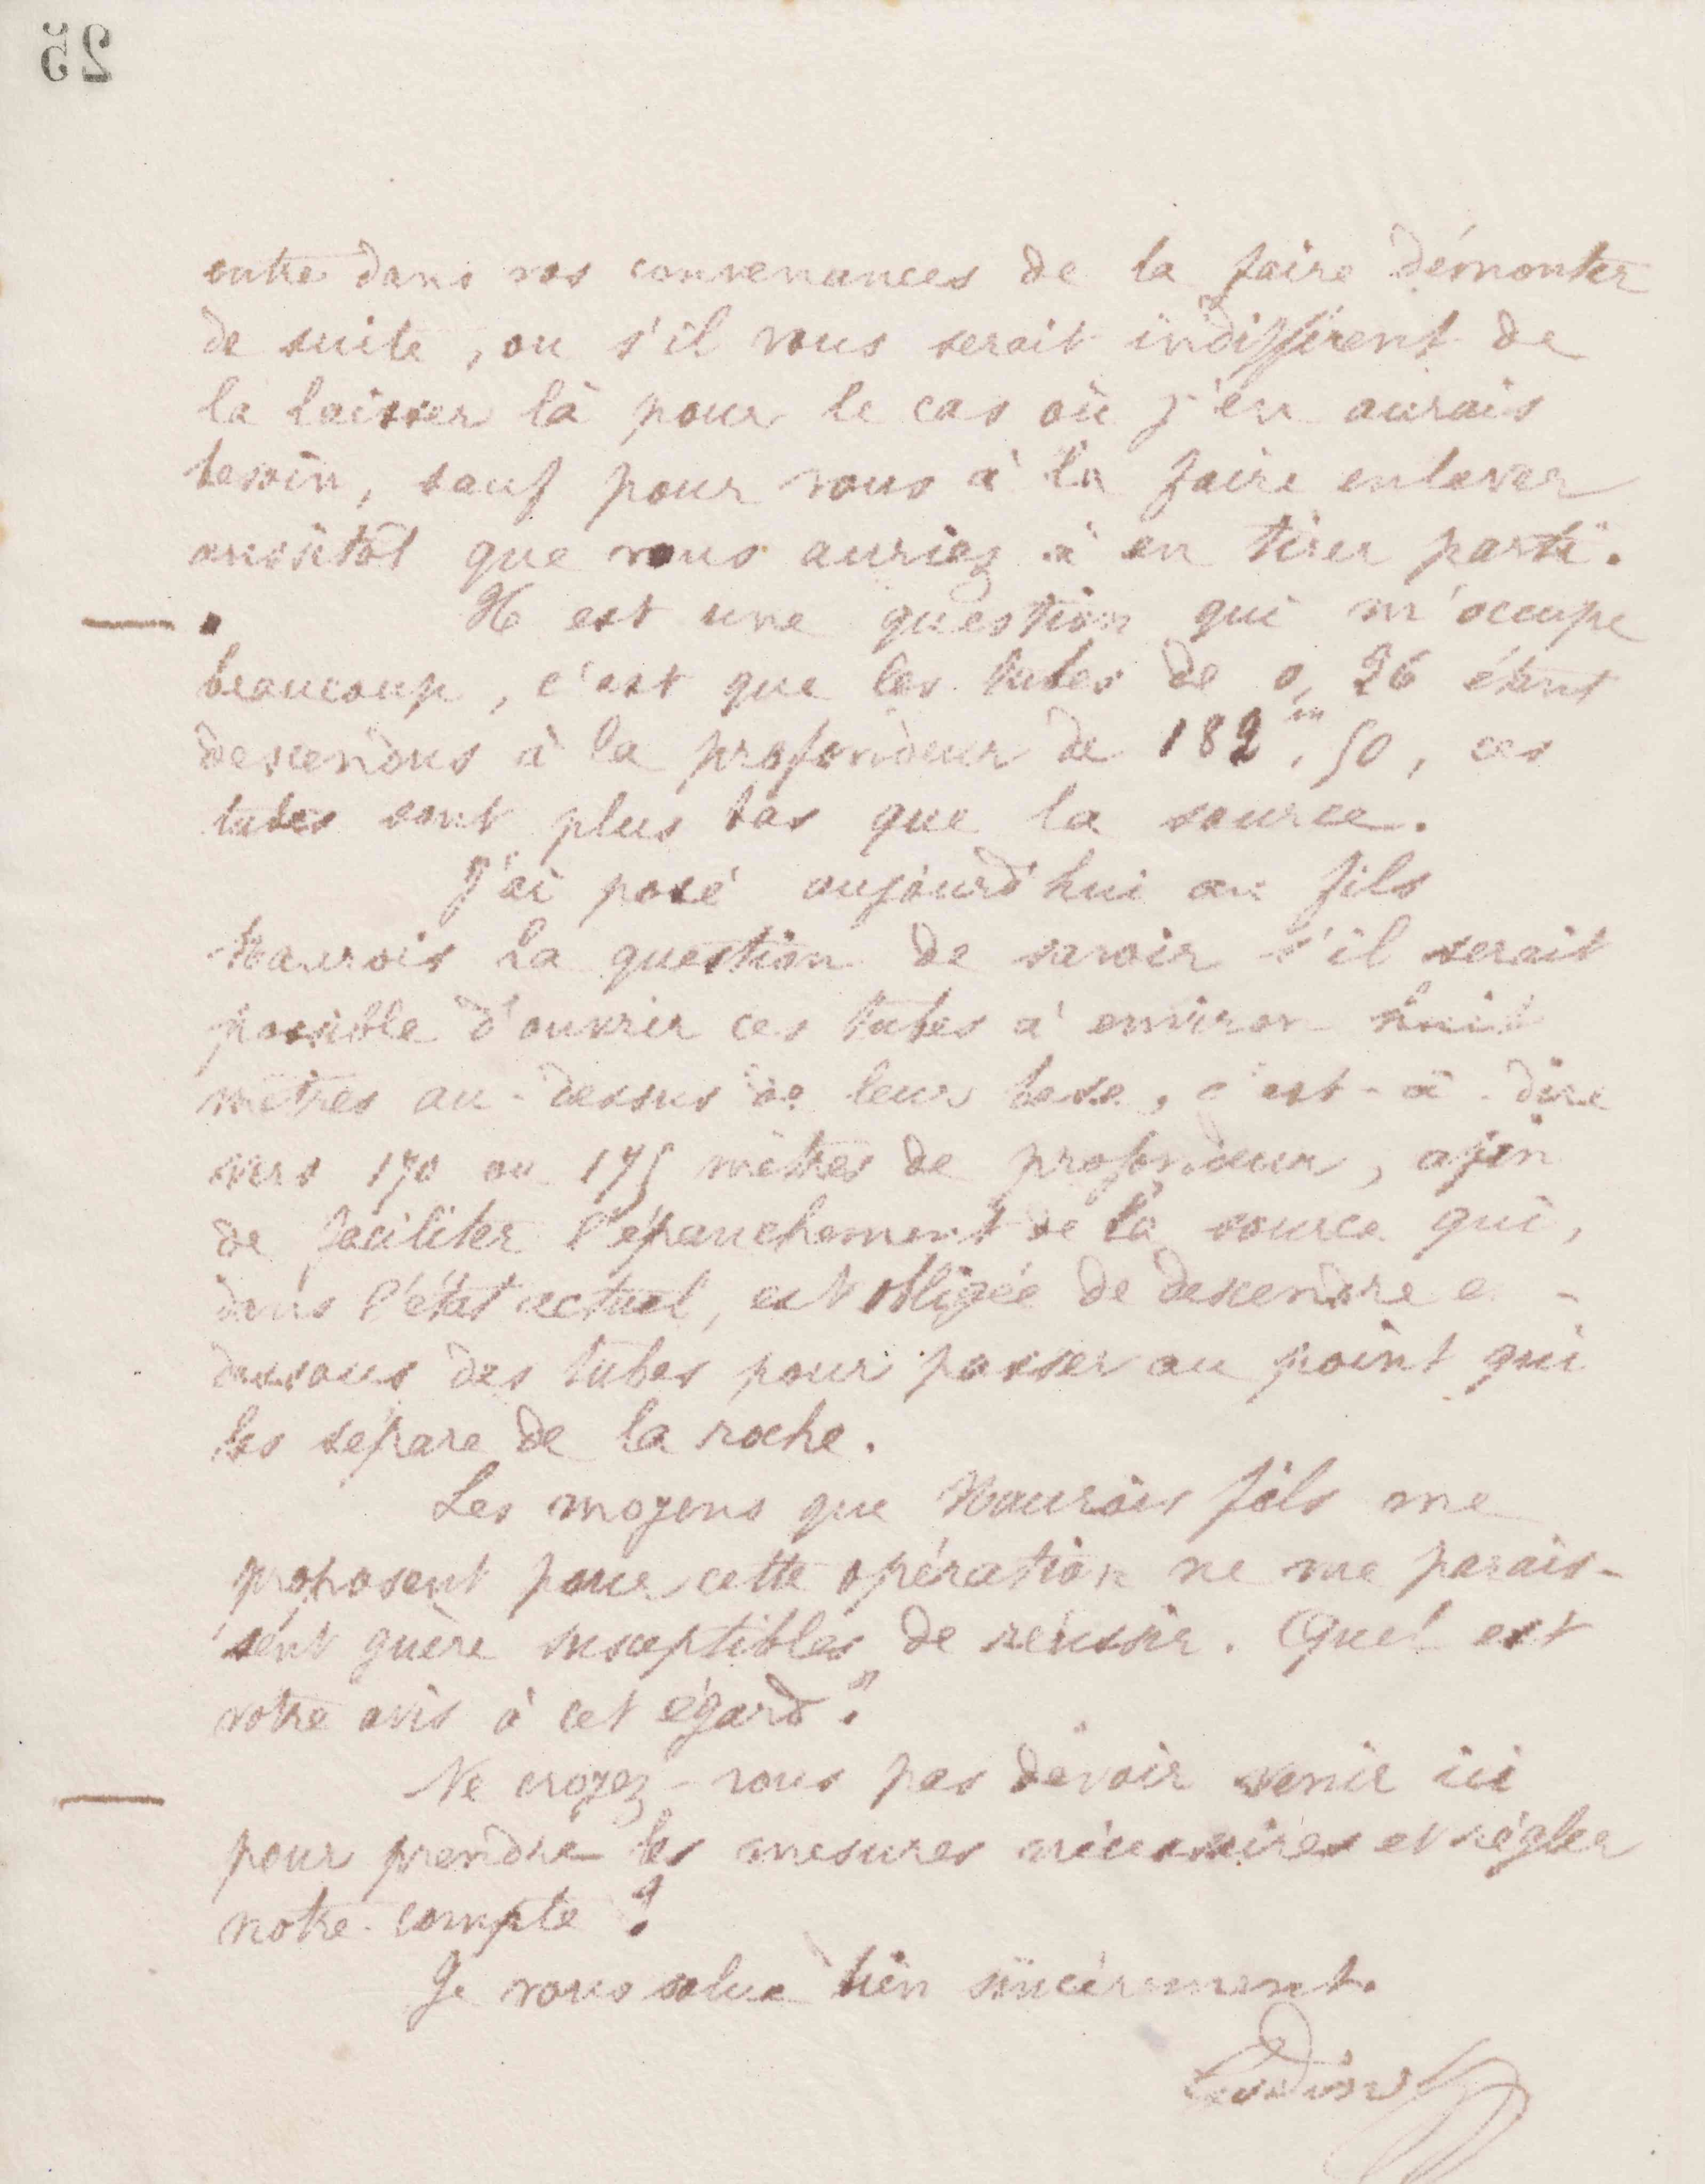 25
entre dans vos convenances de la faire démonter
de suite, ou s'il vous serait indifférent de
la laisser là pour le cas où j'en aurais
besoin, sauf pour vous à la faire enlever
aussitôt que vous auriez à en tirer parti.
Il est une question qui m'occupe
beaucoup, c'est que les tubes de 0,26 étant
descendus à la profondeur de 182m,50, ces
tubes sont plus bas que la source.
J'ai posé aujourd'hui au fils
la question de savoir s'il serait
possible d'ouvrir ces tubes à environ huit
mètres au-dessus de leur base, c'est-à-dire
vers 170 ou 175 mètres de profondeur, afin
de faciliter l'épanchement de la source qui,
dans l'état actuel, est obligée de descendre
dessous des tubes pour passer au point qui
les sépare de la roche.
Les moyens que fils me
proposent pour cette opération ne me parais-
sent guère susceptibles de réussir. Quel est
votre avis à cet égard ?
Ne croyez-vous pas devoir venir ici
pour prendre les mesures nécessaires et régler
notre compte ?
Je vous salue bien sincèrement.
Godin